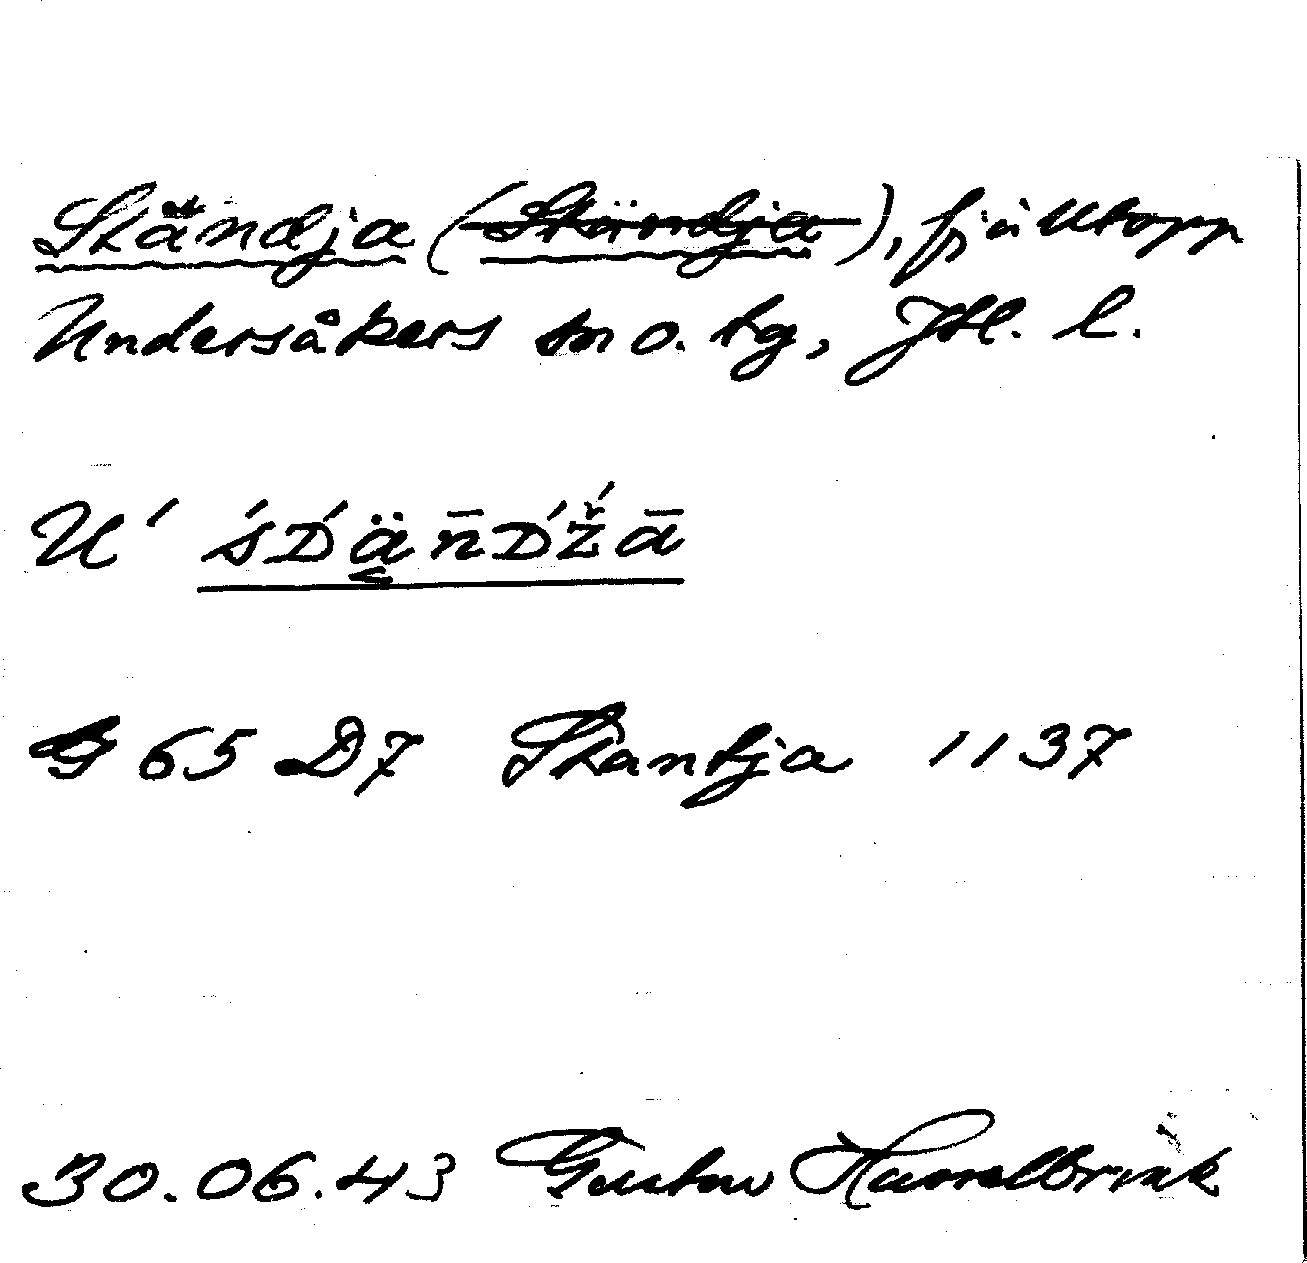 Skändja (Skändja), fjälltopp
Undersåkers sn o. tg, Jtl. l.
U' śᴅ́ä̮n̄ᴅ́ž́ā
G 65 D7 Skantja 1137
30.06.43 Gustav Hasselbrink